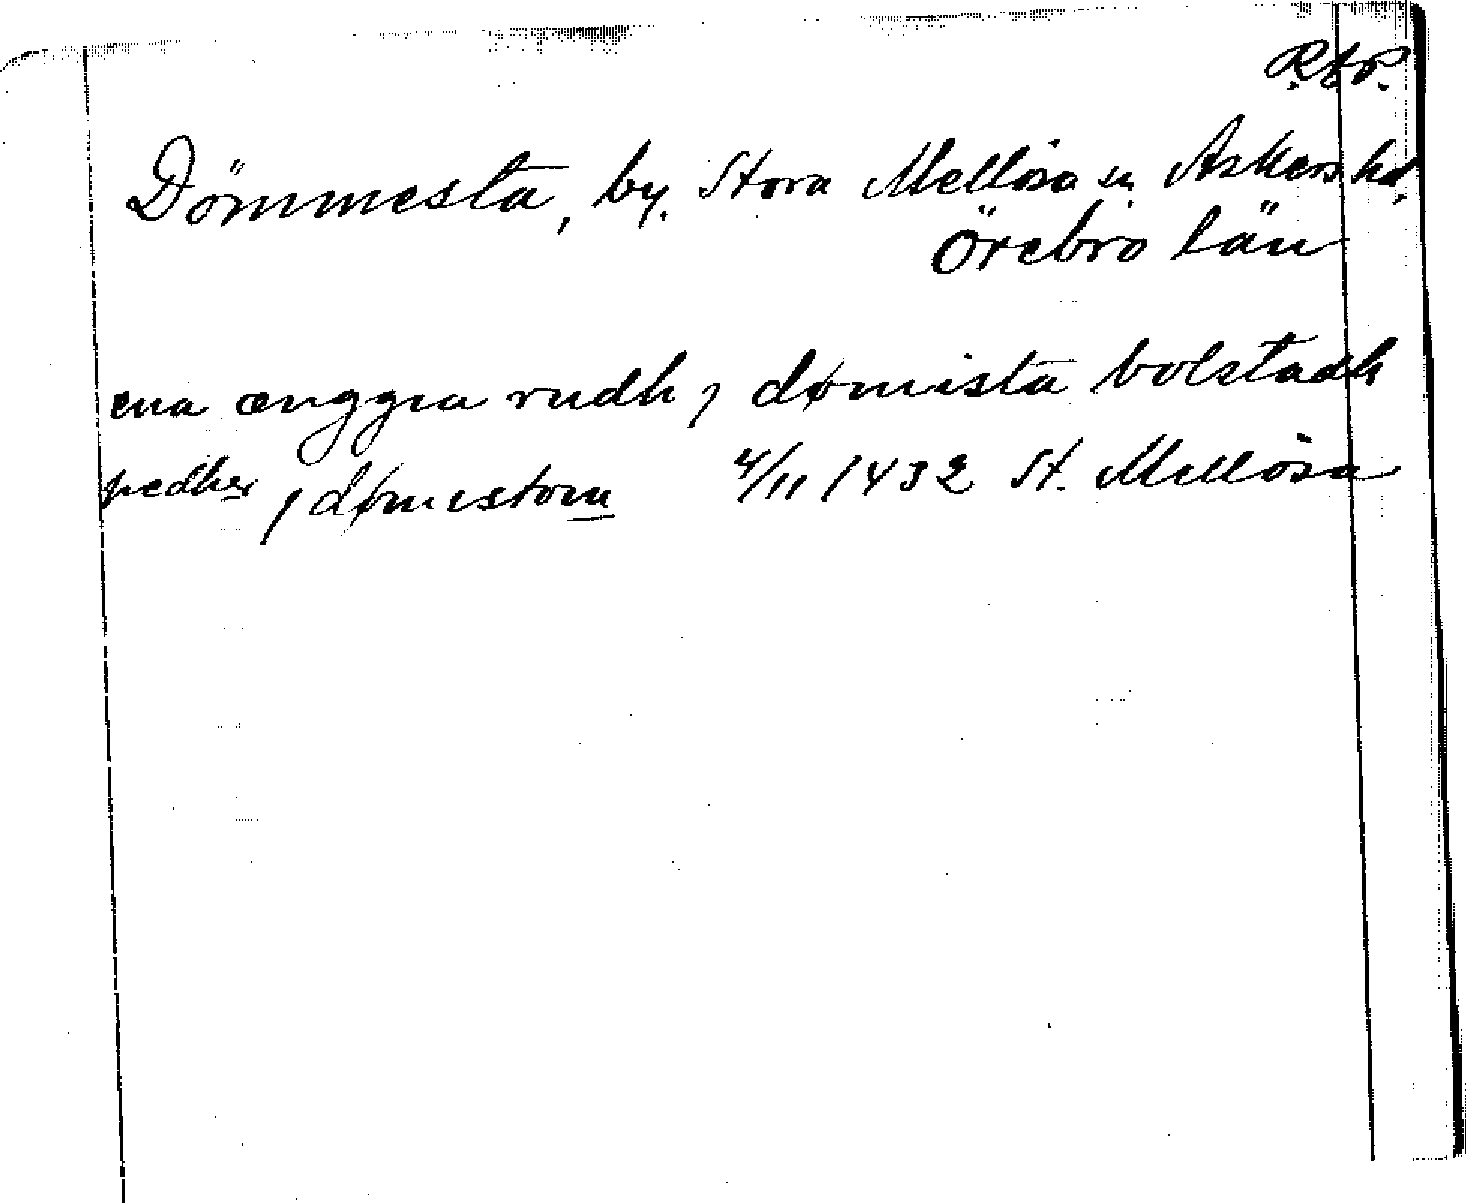 R.A.P.
Dömmesta, by. Stora Mellösa sn Askers hd.
Örebro län
ena ænggia rudh j dømista bolstadh
pedher j dømistom 4/11 1432 St. Mellösa